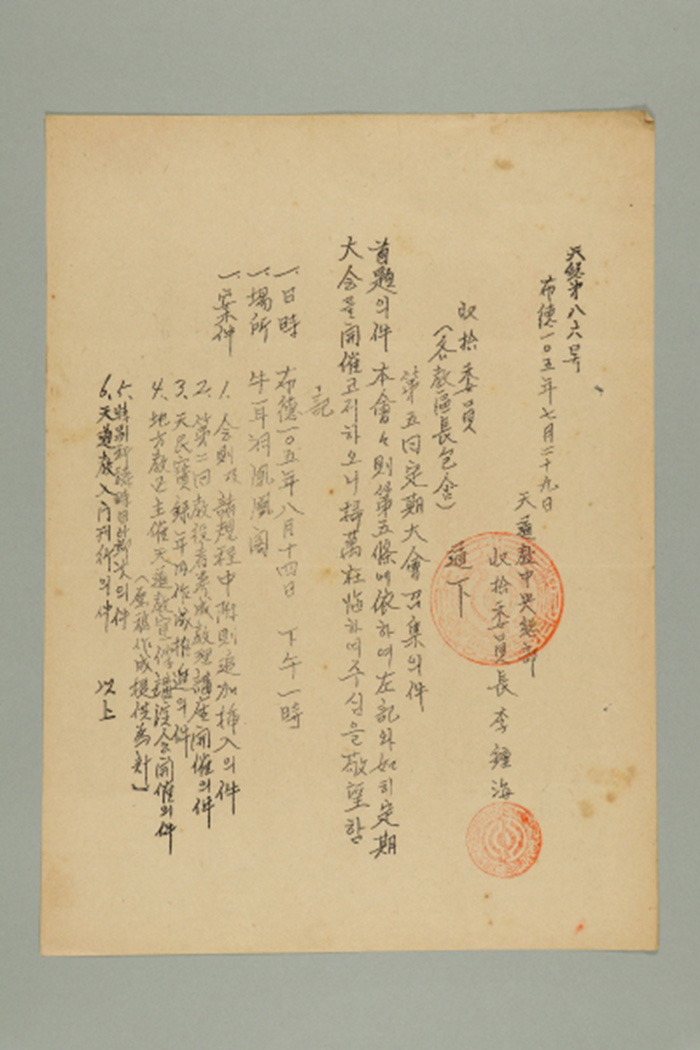 天總第八六号
布德一〇五年七月二十九日
天道敎中央總部
收拾委員長 李鍾海
收拾委員
(各敎區長包含) 通下
第五回定期大會召集의件
首題의件 本會々則第五條에依하여左記와如히定期
大会를開催코저하오니掃萬枉臨하여주심을敬望함
記
一. 日時 布德一〇五年八月十四日 下午一時
一. 場所 牛耳洞鳳凰閣
一. 案件
1. 会則及諸規程中附則追加揷入의件
2. 第二回敎役者養成敎理講座開催의件
3. 天民宝錄年内作成推進의件
4. 地方敎区主催天道敎宣傳講演会開催의件
(原稿作成提供為計)
5. 特別祈禱의件
6. 天道敎入門刊行의件 以上